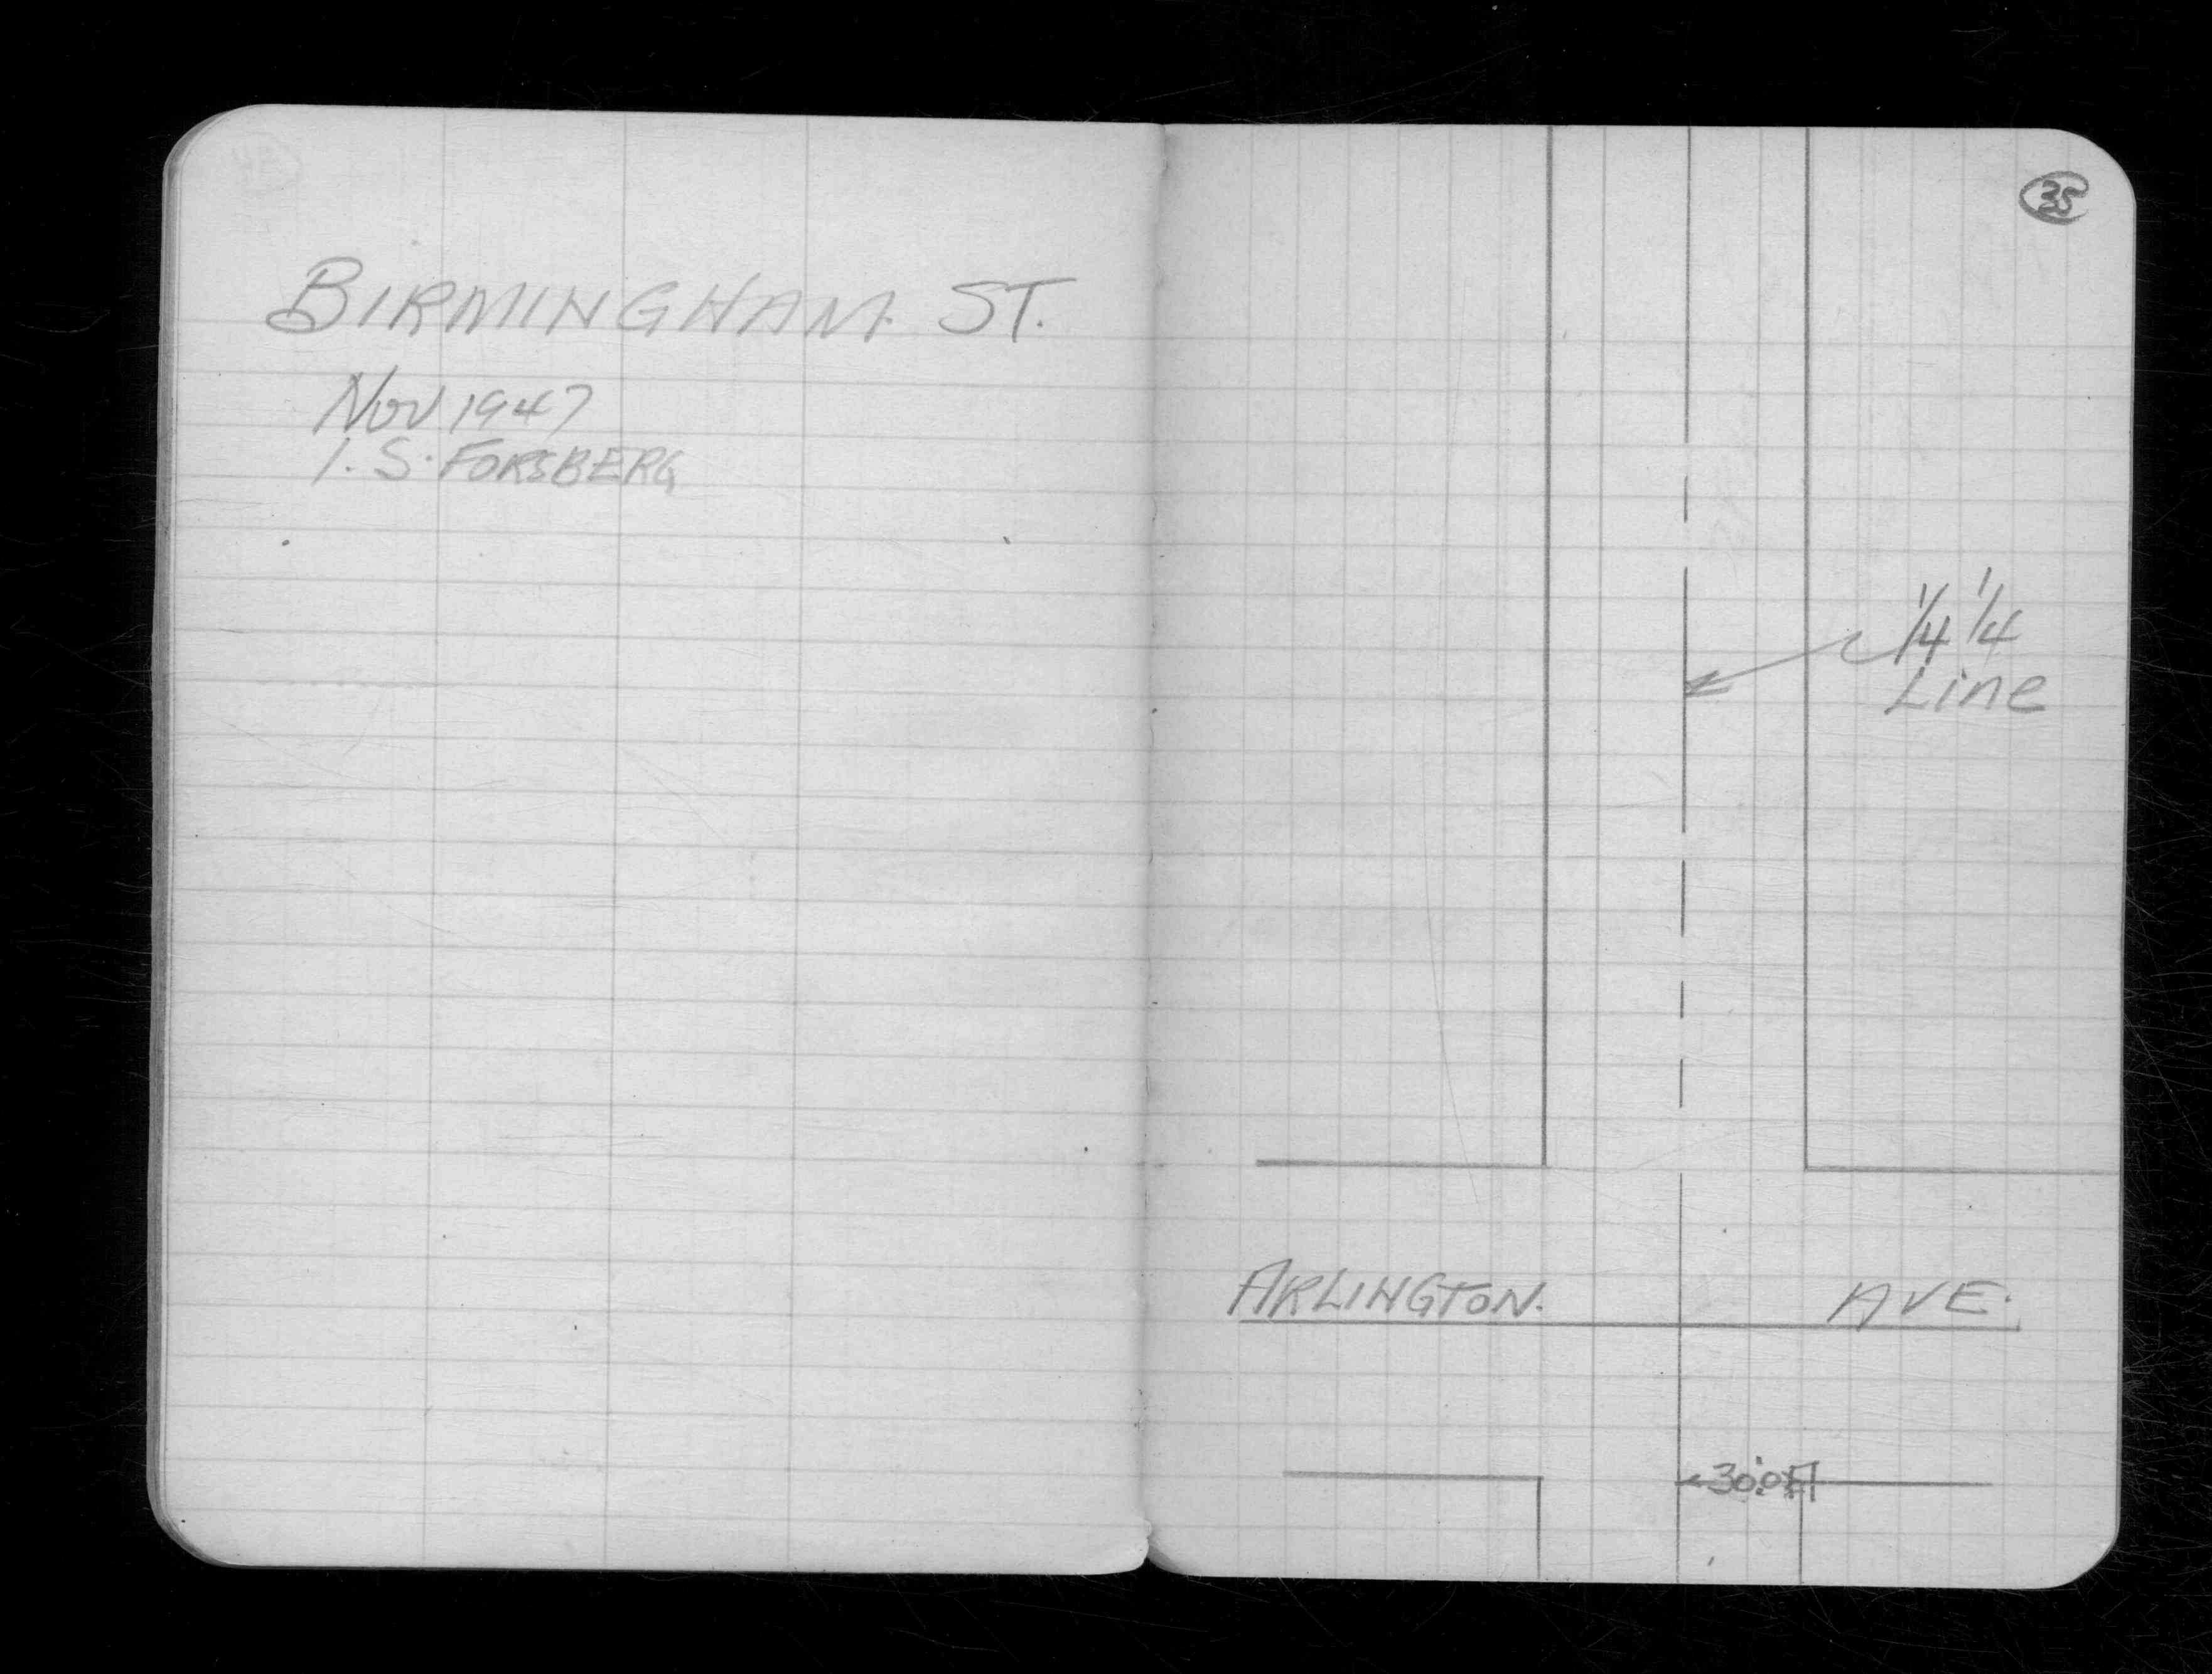 BIRMINGHAM ST.
Nov 1947
I. S. FORSBERG
35
1/4 1/4
Line
ARLINGTON. AVE.